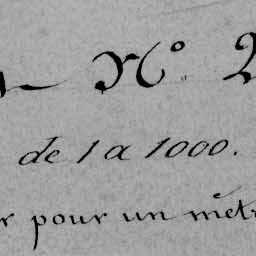 N° 2
de 1 a 1000.
r pour un mètr